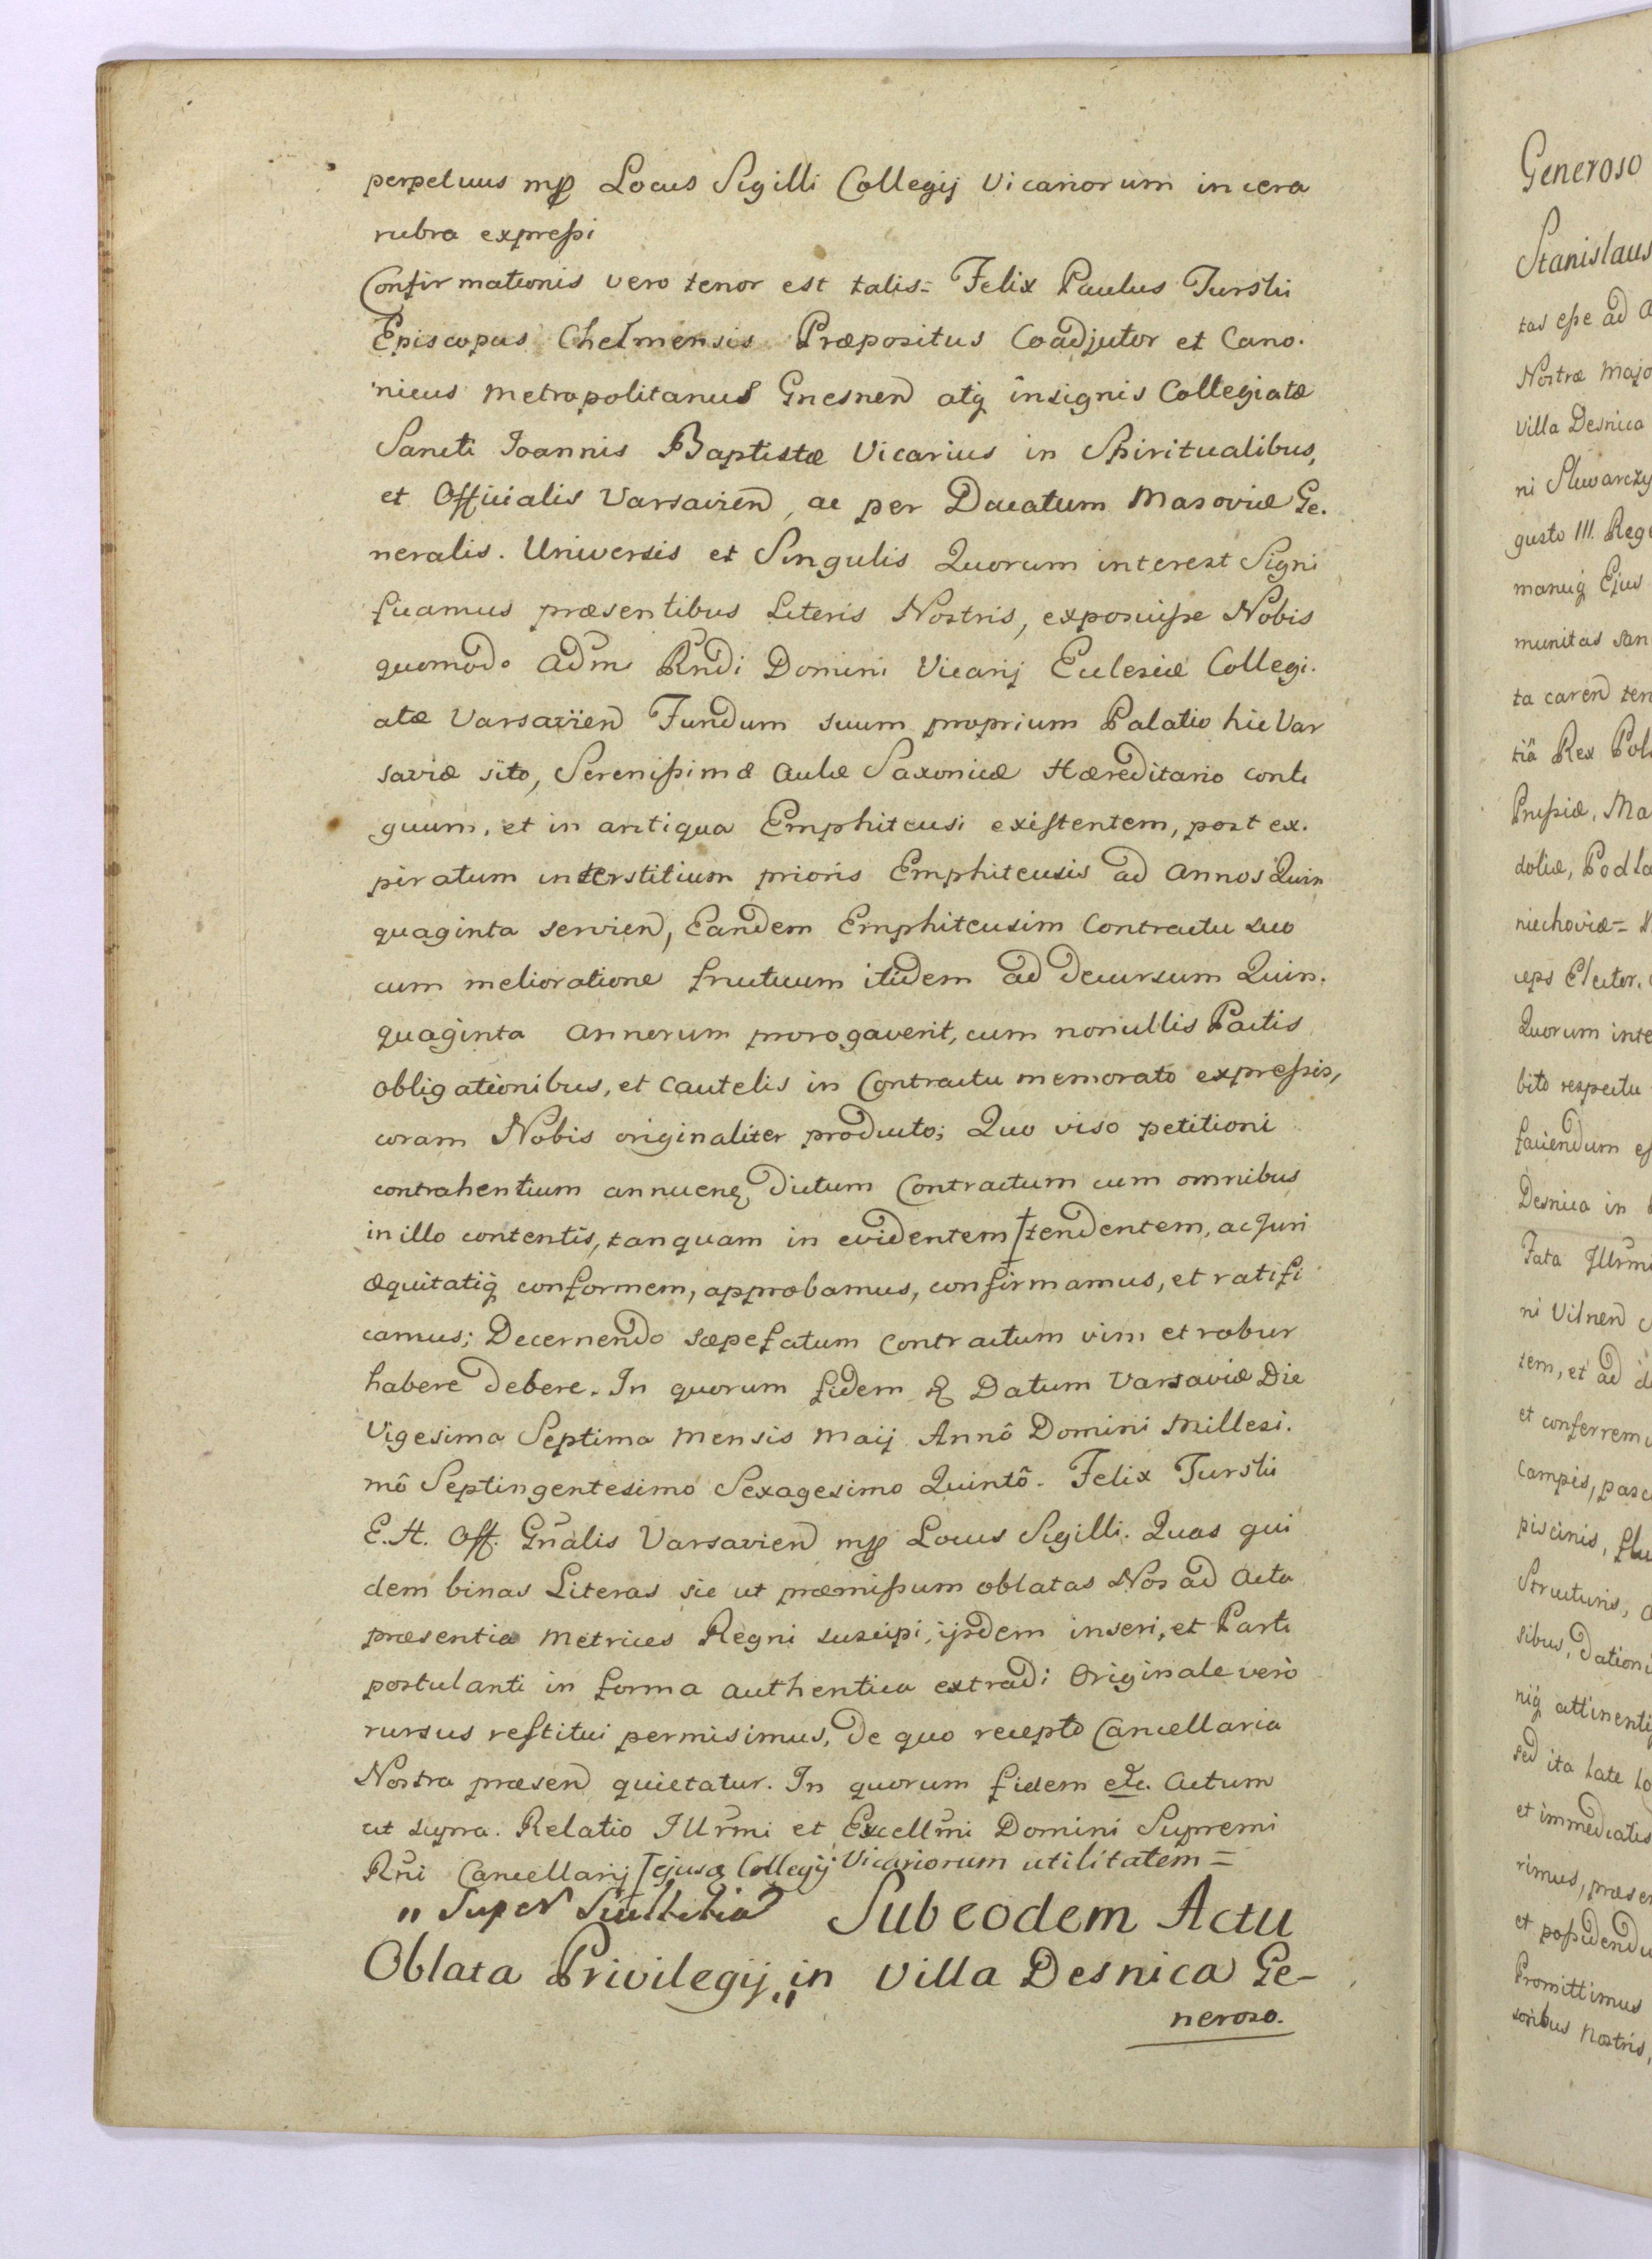 perpetuus mp Locus Sigilli Collegij Vicariorum in cera
rubra expreſsi
Confirmationis vero tenor est talis= Felix Paulus Turski
Episcopus Chelmensis Præpositus Coadjutor et Cano.
nicus Metropolitanus Gnesnen atq insignis Collegiatæ
Sancti Joannis Baptistæ Vicarius in Spiritualibus,
et Officialis Varsavien, ac per Ducatum Masoviæ Ge.
neralis. Universis et Singulis Quorum interest Signi
ficamus præsentibus Literis Nostris, exposuiſse Nobis
quomodo adm Rndi Domini Vicarij Eclesiæ Collegi.
atæ Varsavien Fundum suum proprium Palatio hic Var
saviæ sito, Sereniſsimæ Aulæ Saxonicæ Hæreditario conti
guum, et in antiqua Emphiteusi exiſtentem, post ex.
piratum interstitium prioris Emphiteusis ad Annos Quin
quaginta servien, Eandem Emphiteusim Contractu suo
cum melioratione fructuum itidem ad decursum Quin.
quaginta Annorum prorogaverit, cum nonullis Pactis
obligationibus, et cautelis in Contractu memorato expreſsis,
coram Nobis originaliter producto; Quo viso petitioni
contrahentium annuen, dictum Contractum cum omnibus
in illo contentis, tanquam in evidentem † tendentem, ac Juri
æquitatiq conformem, approbamus, confirmamus, et ratifi
camus; Decernendo sæpefatum contractum vim et robur
habere debere. In quorum fidem & Datum Varsaviæ Die
Vigesima Septima Mensis Maij Annô Domini Millesi.
mô Septingentesimo Sexagesimo Quintô. Felix Turski
E. H. Off. Gnalis Varsavien mp Locus Sigilli. Quas qui
dem binas Literas sic ut præmiſsum oblatas Nos ad Acta
præsentia Metrices Regni suscipi, ijsdem inseri, et Parti
postulanti in forma authentica extradi Originale verò
rursus reſtitui permisimus, de quo recepto Cancellaria
Nostra præsen quietatur. In quorum fidem etc. Actum
ut supra. Relatio Illrmi et Excellmi Domini Supremi
Rni Cancellarij † ejusq Collegij Vicariorum utilitatem =
" Super Scultetia Sub eodem Actu
Oblata Privilegij " in Villa Desnica Ge-
neroso.
Generoso
Stanislaus
tas eſse ad
Nostræ Majo
Villa Desnica
gusto III. Reg
manuq Ejus
munitas san
ta caren ten
tiâ Rex Pol
Pruſsiæ, Ma
doliæ, Podla
niechoviæ=
ceps Elector.
Quorum inte
bito respectu
faciendum eſ
Desnica in
Fata Illrmi
ni Vilnen
tem, et ad
et conferrem
Campis, pasc
piscinis, flu
Structuris,
sibus, dationi
niq attinenti
sed ita late lo
et immediatis
rimus, præsen
et poſsidendu
Promittimus
soribus Nostris,